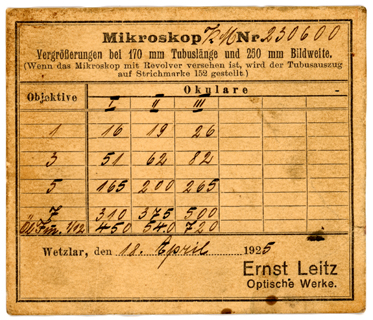 Mikroskop Nr. 250600
Vergrößerungen bei 170 mm Tubuslänge und 250 mm Bildweite.
(Wenn das Mikroskop mit Revolver versehen ist, wird der Tubusauszug
auf Strichmarke 152 gestellt)
Objektive Okulare
I II III
1 16 19 26
3 51 62 82
5 165 200 265
7 310 375 500
Öl Im. 1/12 450 540 720
Wetzlar, den 18. April 1925
Ernst Leitz
Optische Werke.